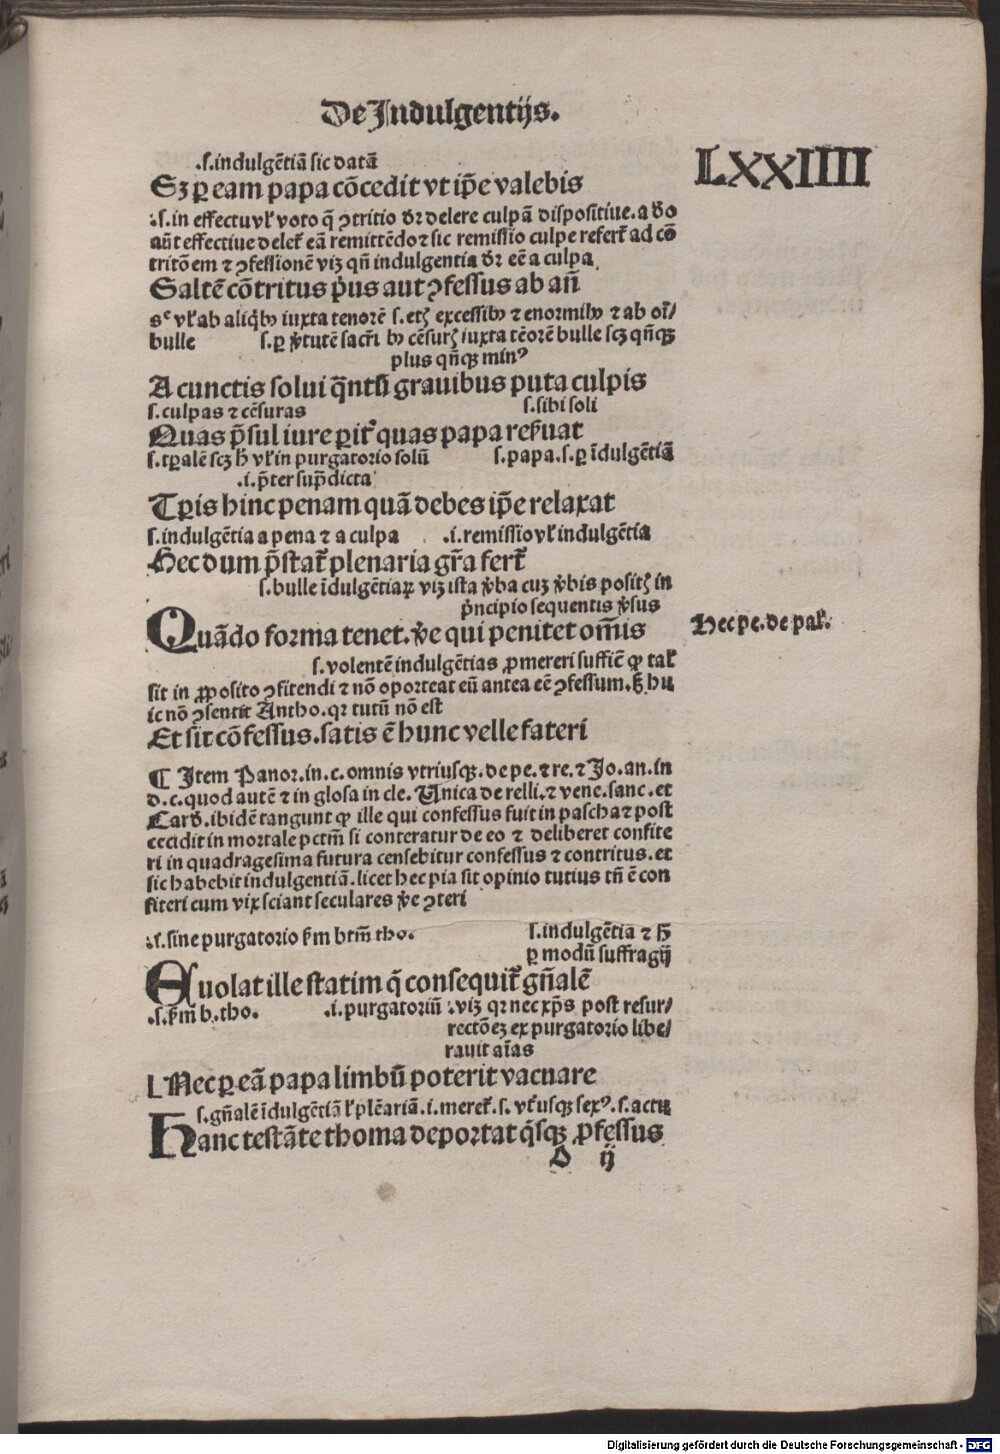 De Indulgentijs.
LXXIIII
.s. indulgẽtiã sic datã
Sꝫ ꝑ eam papa cõcedit vt ip̃e valebis
.s. in effectu vl̓ voto q̃ ꝯtritio dr̃ delere culpã dispositiue. a deo
aũt effectiue delet̃ eã remittẽdo ⁊ sic remissio culpe refert̃ ad cõ
tritõem ⁊ ꝯfessionẽ viꝫ qñ indulgentia dr̃ eẽ a culpa
Saltẽ cõtritus p̃us aut ꝯfessus ab añ
vl̓ ab aliq̃bꝰ iuxta tenorẽ .s. excessibꝰ ⁊ enormibꝰ ⁊ ab oĩ/
bulle .s. ꝑ v̓tutẽ sacr̃i iuxta tẽorẽ bulle scꝫ qñqꝫ
plus qñqꝫ minꝰ
A cunctis solui q̃ntũ grauibus puta culpis
s. culpas ⁊ cẽsuras s. sibi soli
Quas p̃sul iure ꝑit̃ quas papa rẽuat
s. tꝑalẽ scꝫ h̃ vl̓ in purgatorio solũ s. papa .s. ꝑ ĩdulgẽtiã
.i. p̃ter sup̃dicta
Tꝑis hinc penam quã debes ip̃e relaxat
s. indulgẽtia a pena ⁊ a culpa .i. remissio vl̓ indulgẽtia
Hec dum p̃stat̃ plenaria gr̃a fert̃
s. bulle ĩdulgẽtiaꝝ viꝫ ista v̓ba cuꝫ v̓bis posit̃ in
p̃ncipio sequentis v̓sus
Quãdo forma tenet. v̓e qui penitet om̃is
Hec pe. de pal̓.
s. volentẽ indulgẽtias ꝓmereri suffic̃ ꝙ tal̓
sit in ꝓposito ꝯfitendi ⁊ nõ oporteat eũ antea eẽ ꝯfessum. ꝫ hu
ic nõ ꝯsentit Antho. qꝛ tutũ nõ est
Et sit cõfessus. satis ẽ hunc velle fateri
¶ Item Panor. in. c. omnis vtriusqꝫ. de pe. ⁊ re. ⁊ Jo. an. in
d. c. quod autẽ ⁊ in glosa in cle. Unica de relli. ⁊ vene. sanc. et
Card̓. ibidẽ tangunt ꝙ ille qui confessus fuit in pascha ⁊ post
cecidit in mortale pctm̃ si conteratur de eo ⁊ deliberet confite
ri in quadragesima futura censebitur confessus ⁊ contritus. et
sic habebit indulgentiã. licet hec pia sit opinio tutius tñ ẽ con
fiteri cum vix sciant seculares v̓e ꝯteri
.s. sine purgatorio fm̃ btm̃ tho. s. indulgẽtia ⁊ h̃
ꝑ modũ suffragij
Euolat ille statim q̃ consequit̃ gñalẽ
.s. fm̃ b. tho. .i. purgatoriũ viꝫ qꝛ nec xp̃s post resur/
rectõeꝫ ex purgatorio libe/
rauit aĩas
Nec ꝑ eã papa limbũ poterit vacuare
s. gñalẽ ĩdulgẽtiã l̓ plẽariã .i. meret̃ .s. vt̓usqꝫ sexꝰ .s. actu
Hanc testãte thoma deportat q̃sqꝫ ꝓfessus
D ij
Digitalisierung gefördert durch die Deutsche Forschungsgemeinschaft - DFG